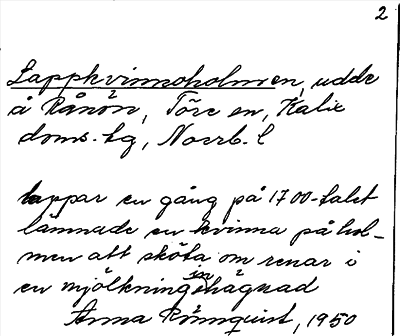 2
Lappkvinnoholmen, udde
å Rånön, Töre sn, Kalix
doms. hg, Norrb. l
lappar en gång på 1700-talet
lämnade en kvinna på hol-
men att sköta om renar i
en mjölkningsinhägnad
Anna Rönnquist, 1950